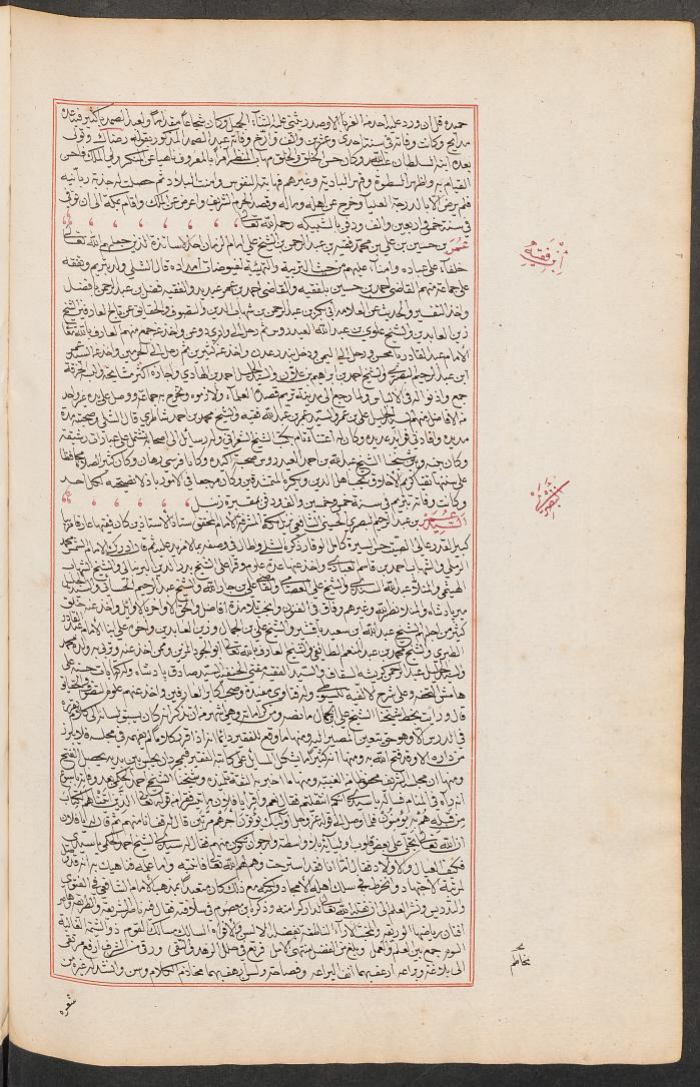 حميده قل ان ورد عليه احد من الغرباء الا وصدر يثني عليه الثناء الجميل وكان شجاعا مقداما ولعبد الصمد باكثير فيه عدة
مدايح وكانت وفاته في سنة احدى وعشرين والف وارخ وفاته عبد الصمد المذكور بقوله وتولى
بعده ابنه السلطان عبد الله وكان حسن الخلق والخلق مهاب المنظر آمرا بالمعروف ناهيا عن المنكر ولي الملك فاحسن
القيام به واظهر السطوة وقهر البادية وغيرهم فهابته النفوس وامنت البلاد ثم حصلت له جذبة ربانية
فلم يرض الا بالدرجة العليا وخرج عن اهله وماله وقصد الحرم الشريف واعرض عن الملك واقام بمكة الى ان توفي
في سنة خمس واربعين والف ودفن بالشبيكة رحمه الله تعالى
عمر بن حسين بن علي بن محمد فقيه بن عبد الرحمن بن الشيخ علي امام الزمان احد الاساتذة الذين جعلهم الله تعالى
خلفاء على عباده وامناء عليهم من حيث التربية والتهيئة لفيوضات امداده قال الشلي ولد بتريم وتفقه
على جماعة منهم القاضي احمد بن حسين بلفقيه والقاضي احمد بن عمر عيديد والفقيه فضل بن عبد الرحمن بافضل
واخذ التفسير والحديث عن العلامة ابي بكر بن عبد الرحمن بن شهاب الدين والتصوف والحقايق عن تاج العارفين الشيخ
زين العابدين والشيخ علوي بن عبد الله العيدروس ثم رحل الى وادي دوعن واخذ عن جمع منهم العارف بالله تعالى
الامام عبد القادر باعشن ورحل الى اليمن ودخل بندر عدن واخذ عن كثيرين ثم رحل الى الحرمين واخذ عن السيد عمر
ابن عبد الرحيم البصري والشيخ احمد بن ابراهيم بن علان والسيد الجليل احمد بن الهادي واجازه اكثر مشايخه والبسه الخرقة
جمع واذنوا له في الالباس ولما رجع الى مدينة تريم قصده العلماء ولازموه وتخرج به جماعة ووصل على يديه غير واحد
منه الافاضل منهم السيد الجليل علي بن عمر والسيد عمر بن عبد الله فقيه والشيخ محمد بن احمد شاطري قال الشلي وصحبته مدة
مديدة وافادني فوايد عديدة وكان له اعتناء تام بكتب الشيخ الشعراني وله رسائل الى اصحابه تشتمل على عبارات رشيقة
وكان بينه وبين شيخنا الشيخ عبد الله بن احمد العيدروس صحبة اكيدة وكانا فرسي رهان وكان كثير الصدقة محافظا
على سنتها نقيا كريم الاخلاق محبا لاهل الدين ويكره المتمردين وكان مرجعا في الامور باذلا نصيحته لكل احد
وكانت وفاته بتريم في سنة خمس وخمسين والف ودفن في مقبرة زنبل
السيد عمر بن عبد الرحيم البصري الحسيني الشافعي نزيل مكة المشرفة الامام المحقق استاذ الاستاذين كان فقيها عارفا مربيا
كبير القدر عالي الصيت حسن السيرة كامل الوقار ذكره الشلي واطال في وصفه بما لا مزيد عليه ثم قال ادرك الامام الشمس محمد
الرملي والشهاب احمد بن قاسم العبادي واخذ عنهما عدة علوم وقرا على الشيخ بدر الدين البرنبالي والشيخ الشهاب
الهيتمي والملا عبد الله السندي والشيخ علي العصامي والقاضي علي بن جار الله والشيخ عبد الرحيم الحساوي والسيد الجليل
مير بادشاه والملا نصر الله وغيرهم وفاق في الفنون وانجب تلامذة افاضل والحق الاواخر بالاوائل واخذ عنه خلق
كثير من اجلهم الشيخ عبد الله بن سعيد باقشير والشيخ علي بن الجمال وزين العابدين واخوه علي ابنا الامام عبد القادر
الطبري والشيخ محمد بن عبد المنعم الطايفي والشيخ العارف بالله تعالى ابو الجود المزين وممن اخذ عنه وتربى به والده محمد
والسيد الجليل عبد الرحمن كريشه السقاف والسيد العفيف مفتي الحنفية السيد صادق بادشاه وله كتابات حسنة على
هامش التحفة وعلى شرح الالفية للسيوطي وله فتاوى مفيدة وصحب اكابر العارفين واخذ عنهم علوم التصوف والحقائق
قال ورايت بخط شيخنا الشيخ علي بن الجمال ما نصه وبركاته وهي شهيرة انه كان يسبق لسانه الى كلام
في الدرس الا وهو حق يتعين المصير اليه ومنها ما وقع للفقير دائما انه اذا قرر كلاما لم افهمه في مجلسه فلا بد
من زيارته الا وقد فتح الله به ومنها انه كثيرا ما تشكل المسائل على كاتبه الفقير فبمجرد ان يجلس بين يديه يحصل الفتح
ومنها ان مجلسه الشريف محفوظ من الغيبة ومنها ما اخبر به الفقير تلميذه وشيخنا الشيخ احمد الحكمي بعد وفاته
انه راه في المنام فسأله يا سيدي كما انتقلتم فقال نعم واقرأ يا فلان يا ابتدائه قرا من قوله تعالى الذين آتيناهم الكتاب
من قبله هم به يؤمنون فلما وصل الى قوله عز وجل اولئك يؤتون اجرهم مرتين قال له قف انا منهم ثم قال له يا فلان
ان الله تعالى يتجلى على بعض قلوب اوليائه بلا واسطة وارجو ان تكون منهم فقال له سيدي الشيخ احمد الحكمي يا سيدي
فكيف العيال والاولاد فقال اما انا فقد استرحت وهم لهم الله تعالى واما علمه فناهيك به انه قد
لمرتبة الاجتهاد وانخرط في سلك اهله الامجاد ولكنه مع ذلك كان متقيدا بمذهب الامام الشافعي في الفتوى
والتدريس ونشر العلم الى ان نقله الله تعالى لدار كرامته وذكره ابن معصوم في سلافته فقال فيه ناظر الشريعة والطريقة وهاصر
افنان رياضها الوريقة والمخضلة الناطقة بفضله الالسن والافواه السالك مسالك القوم ذو الشيمة الغالية
السوم جمع بين العلم والعمل وبلغ من الفضل منتهى الامل فرتع في ظل الزهد والتقى ورقي من الشرف ارفع مرتقى
الى بلاغة وبراعة ارعف بهما انف اليراعة وفصاحة ولسن زهت بهما محاذيم الكلام وسن وانشد له شعره من
ابن فقيه
البصري
شعره